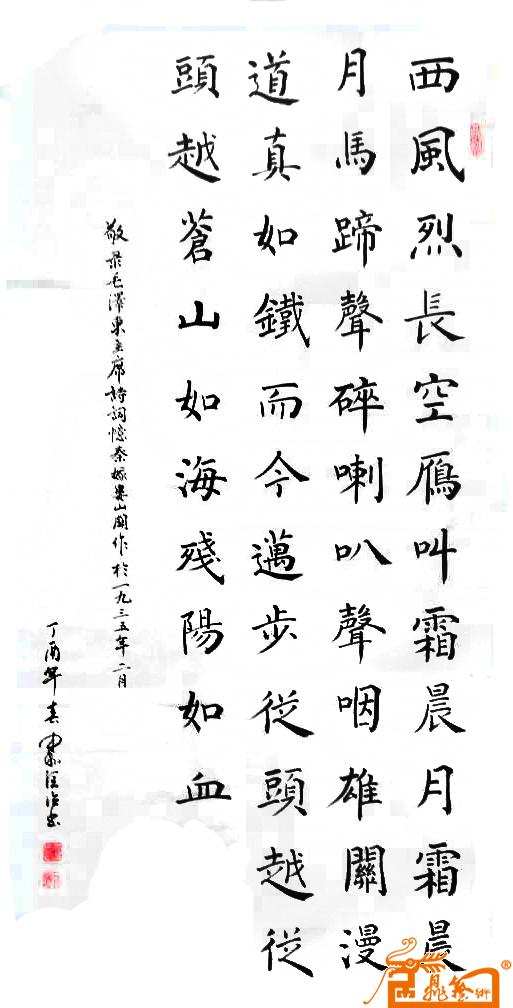 西風烈長空鴈叫霜晨月霜晨
月馬蹄聲碎喇叭聲咽雄關漫
道真如鐵而今邁步從頭越從
頭越蒼山如海殘陽如血
敬录毛澤東主席詩詞憶秦娥婁山關作於一九三五年二月
丁酉年春